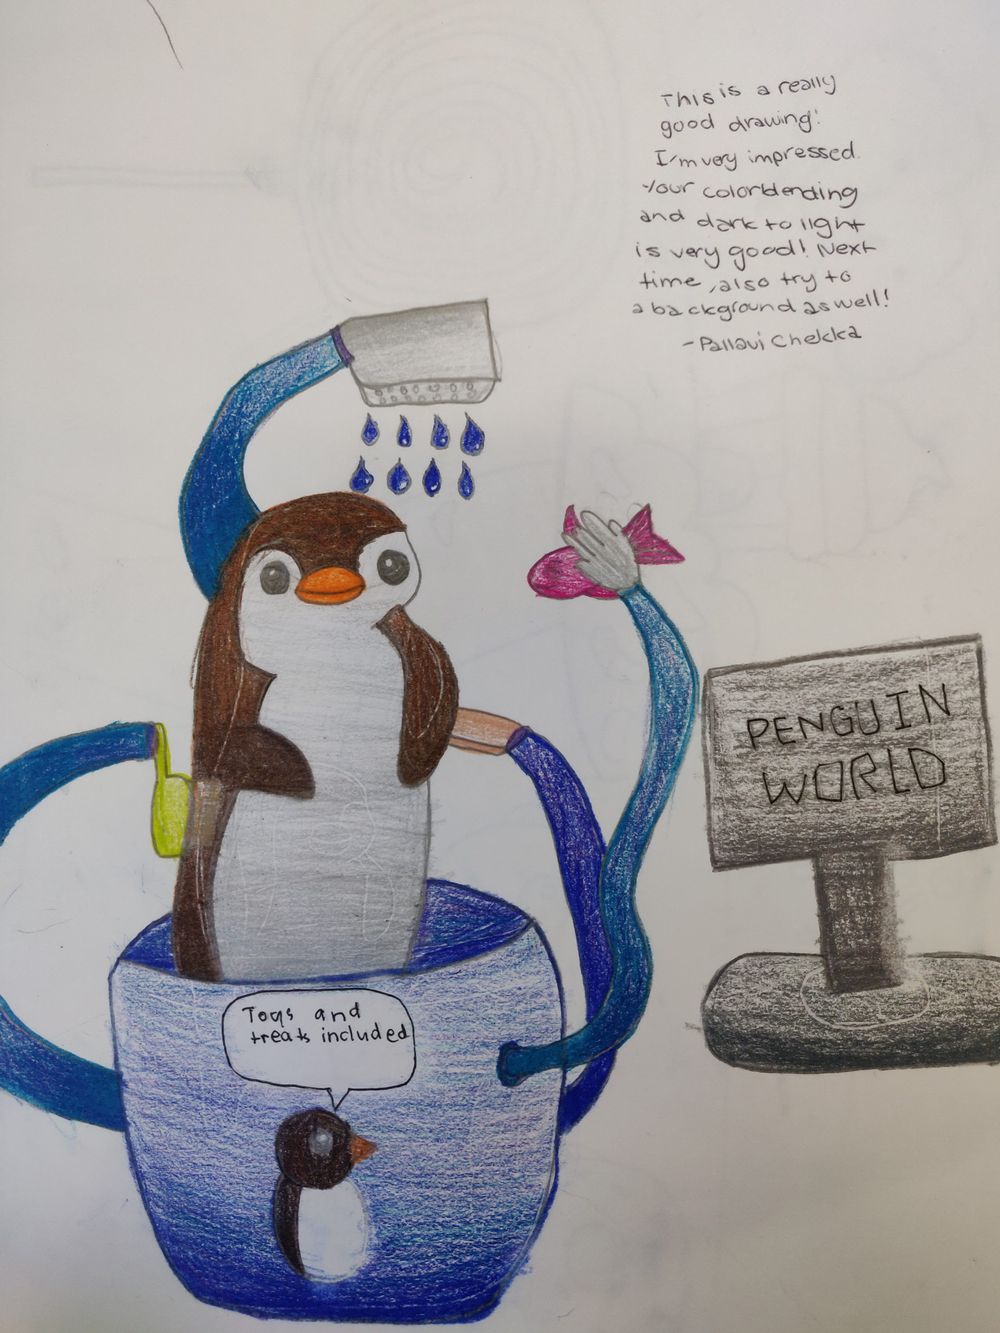 This is a really
good drawing!
I'm very impressed.
Your colorblending
and dark to light
is very good! Next
time, also try to
a background as well!
- Pallavi Chekka
PENGUIN
WORLD
Toqs and
treats included